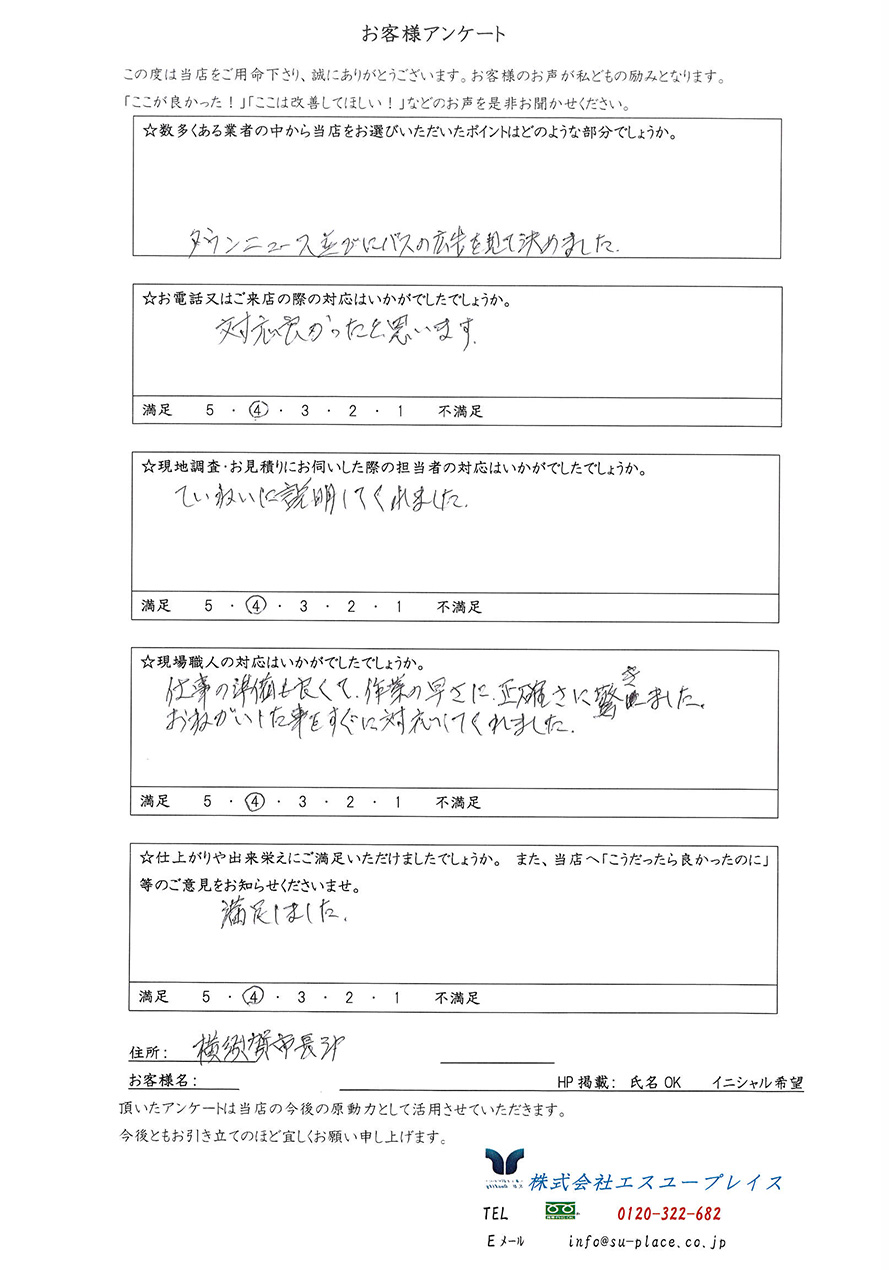 お客様アンケート
この度は当店をご用命下さり、誠にありがとうございます。お客様のお声が私どもの励みとなります。
「ここが良かった！」「ここは改善してほしい！」などのお声を是非お聞かせください。
☆数多くある業者の中から当店をお選びいただいたポイントはどのような部分でしょうか。
タウンニュース並びにバスの広告を見て決めました.
☆お電話又はご来店の際の対応はいかがでしたでしょうか。
対応良かったと思います.
満足 5 ・ 4 ・ 3 ・ 2 ・ 1 不満足
☆現地調査・お見積りにお伺いした際の担当者の対応はいかがでしたでしょうか。
ていねいに説明してくれました.
満足 5 ・ 4 ・ 3 ・ 2 ・ 1 不満足
☆現場職人の対応はいかがでしたでしょうか。
仕事の準備も良くて、作業の早さに、正確さに驚きました。
おねがいした事をすぐに対応してくれました.
満足 5 ・ 4 ・ 3 ・ 2 ・ 1 不満足
☆仕上がりや出来栄えにご満足いただけましたでしょうか。 また、当店へ「こうだったら良かったのに」
等のご意見をお知らせくださいませ。
満足しました.
満足 5 ・ 4 ・ 3 ・ 2 ・ 1 不満足
住所： 横須賀市長沢
お客様名： HP掲載： 氏名OK イニシャル希望
頂いたアンケートは当店の今後の原動力として活用させていただきます。
今後ともお引き立てのほど宜しくお願い申し上げます。
株式会社エスユープレイス
TEL 0120-322-682
Eメール info@su-place.co.jp